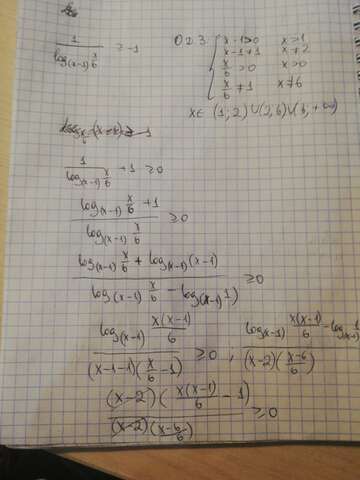 1/(log_(x-1) x/6) ≥ -1
ОДЗ { x-1>0 x>1
x-1≠1 x≠2
x/6>0 x>0
x/6≠1 x≠6
x∈(1;2)∪(2,6)∪(6,+∞)
1/(log_(x-1) x/6) +1 ≥0
(log_(x-1) x/6 +1)/(log_(x-1) x/6) ≥0
(log_(x-1) x/6 + log_(x-1)(x-1))/(log_(x-1) x/6 - log_(x-1) 1) ≥0
(log_(x-1) x(x-1)/6)/((x-1-1)(x/6 -1)) ≥0 ; (log_(x-1) x(x-1)/6 - log 1)/((x-2)((x-6)/6))
((x-2)(x(x-1)/6 -1))/((x-2)((x-6)/6)) ≥0